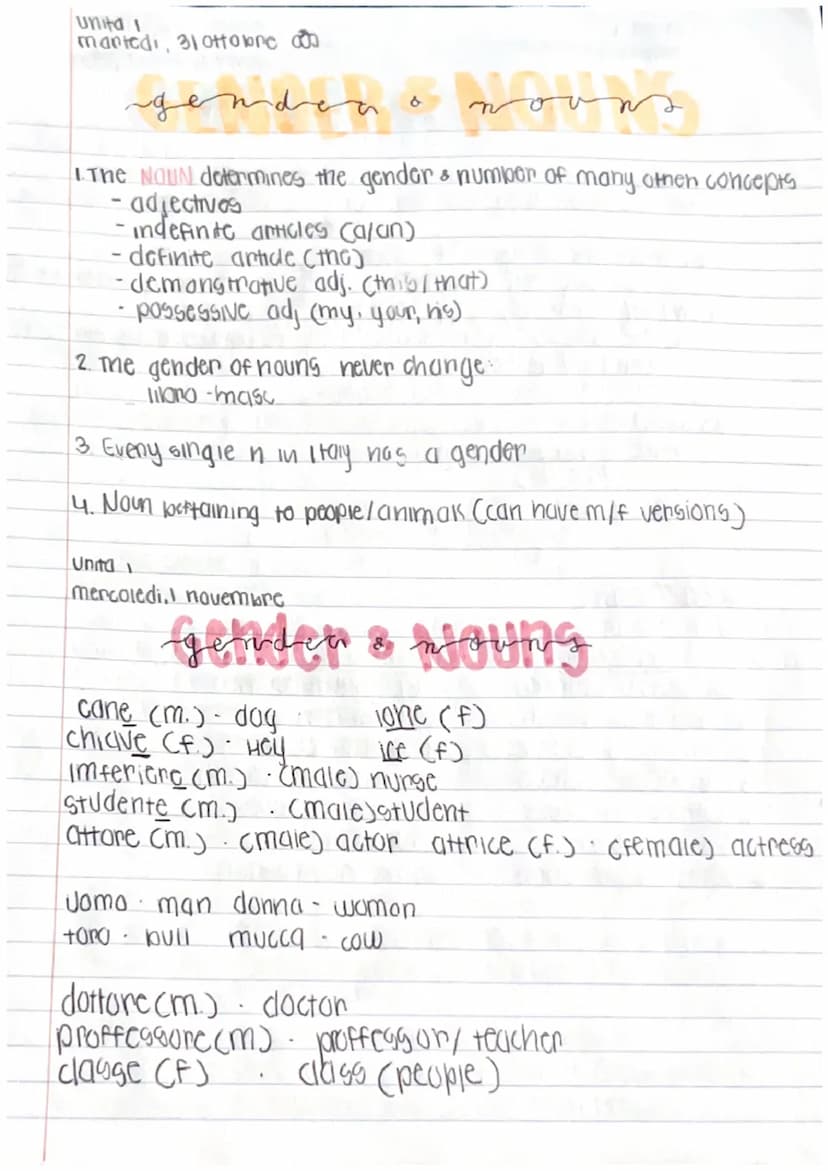 Unita 1
martedi, 31 Ottobre
GENDER & NOUNS
gender & nouns
1. The NOUN determines the gender & number of many other concepts
- adjectives
- indefinite articles (a/an)
- definite article (the)
- demonstrative adj. (this/that)
- possessive adj (my, your, his)
2. The gender of nouns never change:
libro - masc
3. Every single n in Italy has a gender
4. Noun pertaining to people/animals (can have m/f versions)
Unita 1
mercoledi, 1 novembre
Gender & Nouns
gender & nouns
cane (m.) - dog ione (f)
chiave (f.) - key ice (f)
imferiere (m.) - (male) nurse
studente (m.) - (male) student
attore (m.) - (male) actor attrice (f.) - (female) actress
uomo - man donna - woman
toro - bull mucca - cow
dottore (m.) - doctor
proffessore (m) - proffessor/ teacher
classe (f) - class (people)